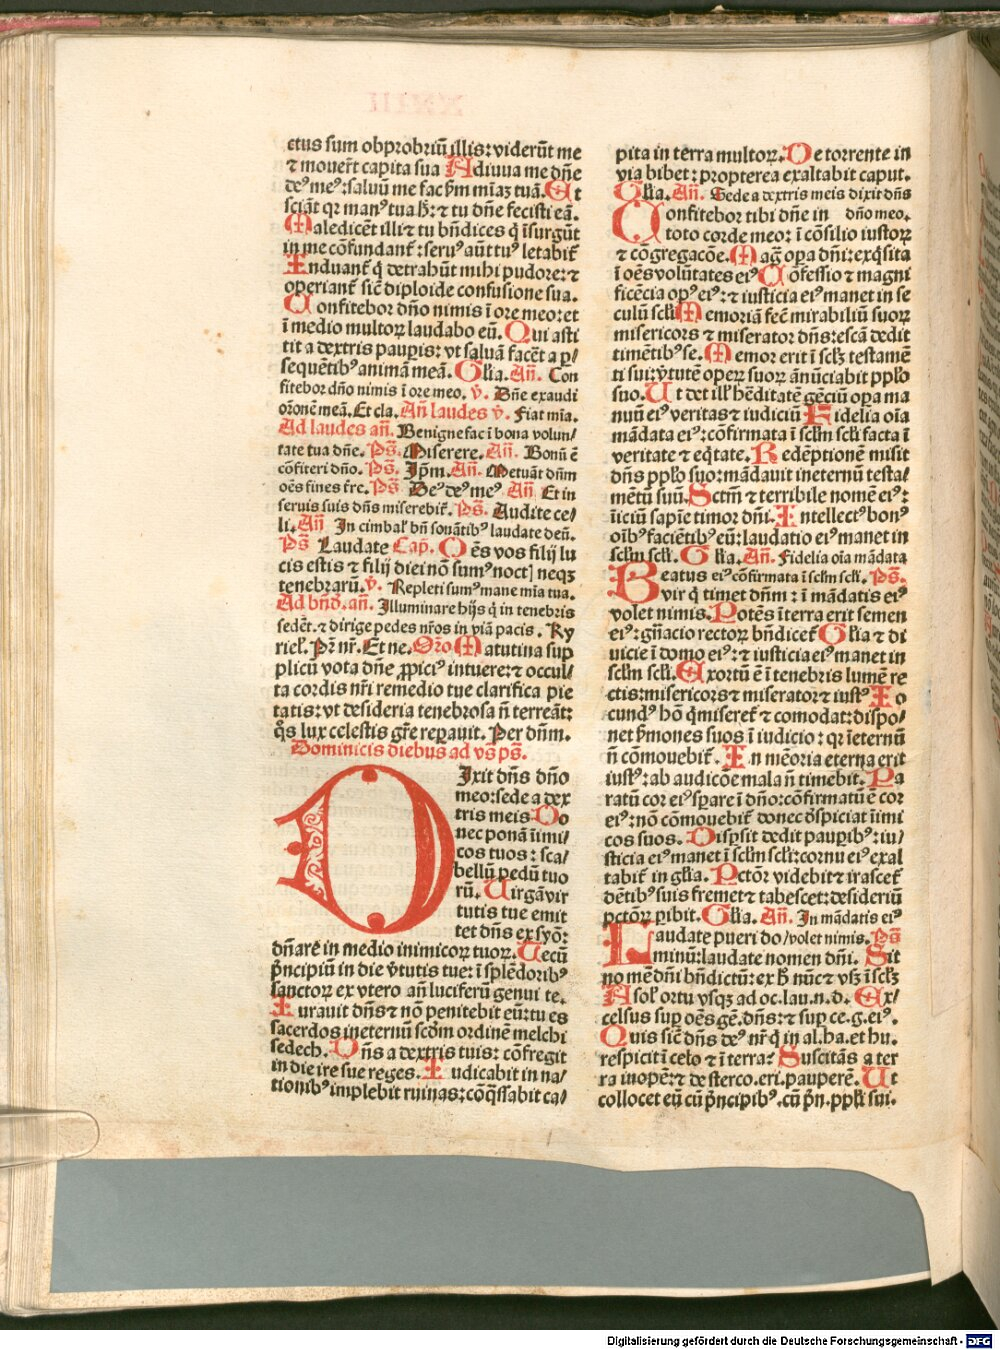 ctus sum obprobriū illis: viderūt me
⁊ mouerūt capita sua Adiuua me dn̄e
de᷒ me᷒: saluū me fac ẜm mīaꝫ tuā. Et
sciāt qꝛ man᷒ tua h̄: ⁊ tu dn̄e fecisti eā.
Maledicēt illi ⁊ tu bn̄dices q̄ īsurgūt
in me cōfundant᷑: seru᷒ aūt tu᷒ letabit᷑
Induant᷑ q̇ detrahūt mihi pudore: ⁊
operiant᷑ sic̄ diploide confusione sua.
Confitebor dn̄o nimis ī ore meo: et
ī medio multoꝝ laudabo eū. Qui asti
tit a dextris paup̲is: vt saluā facēt a p̲/
sequētib᷒ animā meā. Gl̄ia. Añ. Con
fitebor dn̄o nimis ī ore meo. ꝟ. Dn̄e exaudi
or̄onē meā. Et cla. Añ laudes ꝟ. Fiat mīa.
Ad laudes añ. Benigne fac ī bona volun/
tate tua dn̄e. Ps̄. Miserere. Añ. Bonū ē
cōfiteri dn̄o. Ps̄. Ip̄m. Añ. Metuāt dn̄m
oēs fines tr̄e. Ps̄ De᷒ de᷒ me᷒ Añ Et in
seruis suis dn̄s miserebit᷑. Ps̄. Audite ce/
li. Añ In cimbal̄ bn̄ sonātib᷒ laudate deū.
Ps̄ Laudate Cap̄. Oēs vos filij lu
cis estis ⁊ filij diei nō sum᷒ noct] neqꝫ
tenebrarū. ꝟ. Repleti sum᷒ mane mīa tua.
Ad bn̄d̄. añ. Illuminare hijs q̇ in tenebris
sedēt. ⁊ dirige pedes nr̄os in viā pacis. Ky
riel̄. Pr̄ nr̄. Et ne. Or̄o Matutina sup
plicū vota dn̄e ꝓpici᷒ intuere: ⁊ occul/
ta cordis nr̄i remedio tue clarifica pie
tatis: vt desideria tenebrosa ñ terreāt:
q̊s lux celestis gr̄e repauit. Per dn̄m.
Dominicis diebus ad vs̄ ps̄.
DIxit dn̄s dn̄o
meo: sede a dex
tris meis Do
nec ponā īimi/
cos tuos: sca/
bellū pedū tuo
rū. Uirgā vir
tutis tue emit
tet dn̄s ex syō:
dn̄are in medio inimicoꝝ tuoꝝ. Tecū
p̄ncipiū in die v̄tutis tue: ī splēdorib᷒
sanctoꝝ ex vtero añ luciferū genui te.
Iurauit dn̄s ⁊ nō penitebit eū: tu es
sacerdos ineternū scd̄m ordinē melchi
sedech. Dn̄s a dextris tuis: cōfregit
in die ire sue reges. Iudicabit in na/
tionib᷒ implebit ruinas: cōq̄ssabit ca/
pita in terra multoꝝ. De torrente in
via bibet: propterea exaltabit caput.
Gl̄ia. Añ. Sede a dextris meis dixit dn̄s
Confitebor tibi dn̄e in dn̄o meo.
toto corde meo: ī cōsilio iustoꝝ
⁊ cōgregacōe. Maḡ opa dn̄i: exq̇sita
ī oēs volūtates ei᷒ Cōfessio ⁊ magni
ficēcia op᷒ ei᷒: ⁊ iusticia ei᷒ manet in se
culū scl̄i Memoriā fec̄ mirabiliū suoꝝ
misericors ⁊ miserator dn̄s: escā dedit
timētib᷒ se. Memor erit ī scl̄ꝫ testamē
ti sui: v̄tutē operꝝ suoꝝ ānūciabit pp̄lo
suo. Ut det ill̄ h̄editatē gēciū opa ma
nuū ei᷒ veritas ⁊ iudiciū Fidelia oīa
mādata ei᷒: cōfirmata ī scl̄m scl̄i facta ī
veritate ⁊ eq̄tate. Redēptionē misit
dn̄s pp̄lo suo: mādauit ineternū testa/
mētū suū. Sctm̄ ⁊ terribile nomē ei᷒:
īiciū sapīe timor dn̄i. Intellect᷒ bon᷒
oīb᷒ faciētib᷒ eū: laudatio ei᷒ manet in
scl̄m scl̄i. Gl̄ia. Añ. Fidelia oīa mādata
Beatus ei᷒ cōfirmata ī scl̄m scl̄i. Ps̄.
vir q̇ timet dn̄m: ī mādatis ei᷒
volet nimis. Potēs ī terra erit semen
ei᷒: gn̄acio rectoꝝ bn̄dicet᷑ Gl̄ia ⁊ di
uicie ī domo ei᷒: ⁊ iusticia ei᷒ manet in
scl̄m scl̄i. Exortū ē ī tenebris lumē re
ctis: misericors ⁊ miserator ⁊ iust᷒ Io
cund᷒ hō q̇ miseret᷑ ⁊ comodat: dispo/
net ẜmones suos ī iudicio: qꝛ ieternū
ñ cōmouebit᷑. In mēoria eterna erit
iust᷒: ab audicōe mala ñ timebit. Pa
ratū cor ei᷒ sp̲are ī dn̄o: cōfirmatū ē cor
ei᷒: nō cōmouebit᷑ donec d̄spiciat īimi
cos suos. Disp̲sit dedit paup̲ib᷒: iu/
sticia ei᷒ manet ī scl̄m scl̄i: cornu ei᷒ exal
tabit᷑ in gl̄ia. Pctōr videbit ⁊ irascet᷑
dētib᷒ suis fremet ⁊ tabescet: desideriū
pctōꝝ p̲ibit. Gl̄ia. Añ. In mādatis ei᷒
Laudate pueri do/volet nimis. Ps̄
minū: laudate nomen dn̄i. Sit
nomē dn̄i bn̄dictū: ex h̄ nūc ⁊ vsꝫ ī scl̄ꝫ
A sol̄ ortu vsqꝫ ad oc. lau. n. d. Ex/
celsus sup oēs gē. dn̄s: ⁊ sup ce. g. ei᷒.
Quis sic̄ dn̄s de᷒ nr̄ q̇ in al. ha. et hu.
respicit ī celo ⁊ ī terra? Suscitās a ter
ra inopē: ⁊ de sterco. eri. pauperē. Ut
collocet eū cū p̄ncipib᷒. cū p̄n. pp̄li sui.
Digitalisierung gefördert durch die Deutsche Forschungsgemeinschaft - DFG